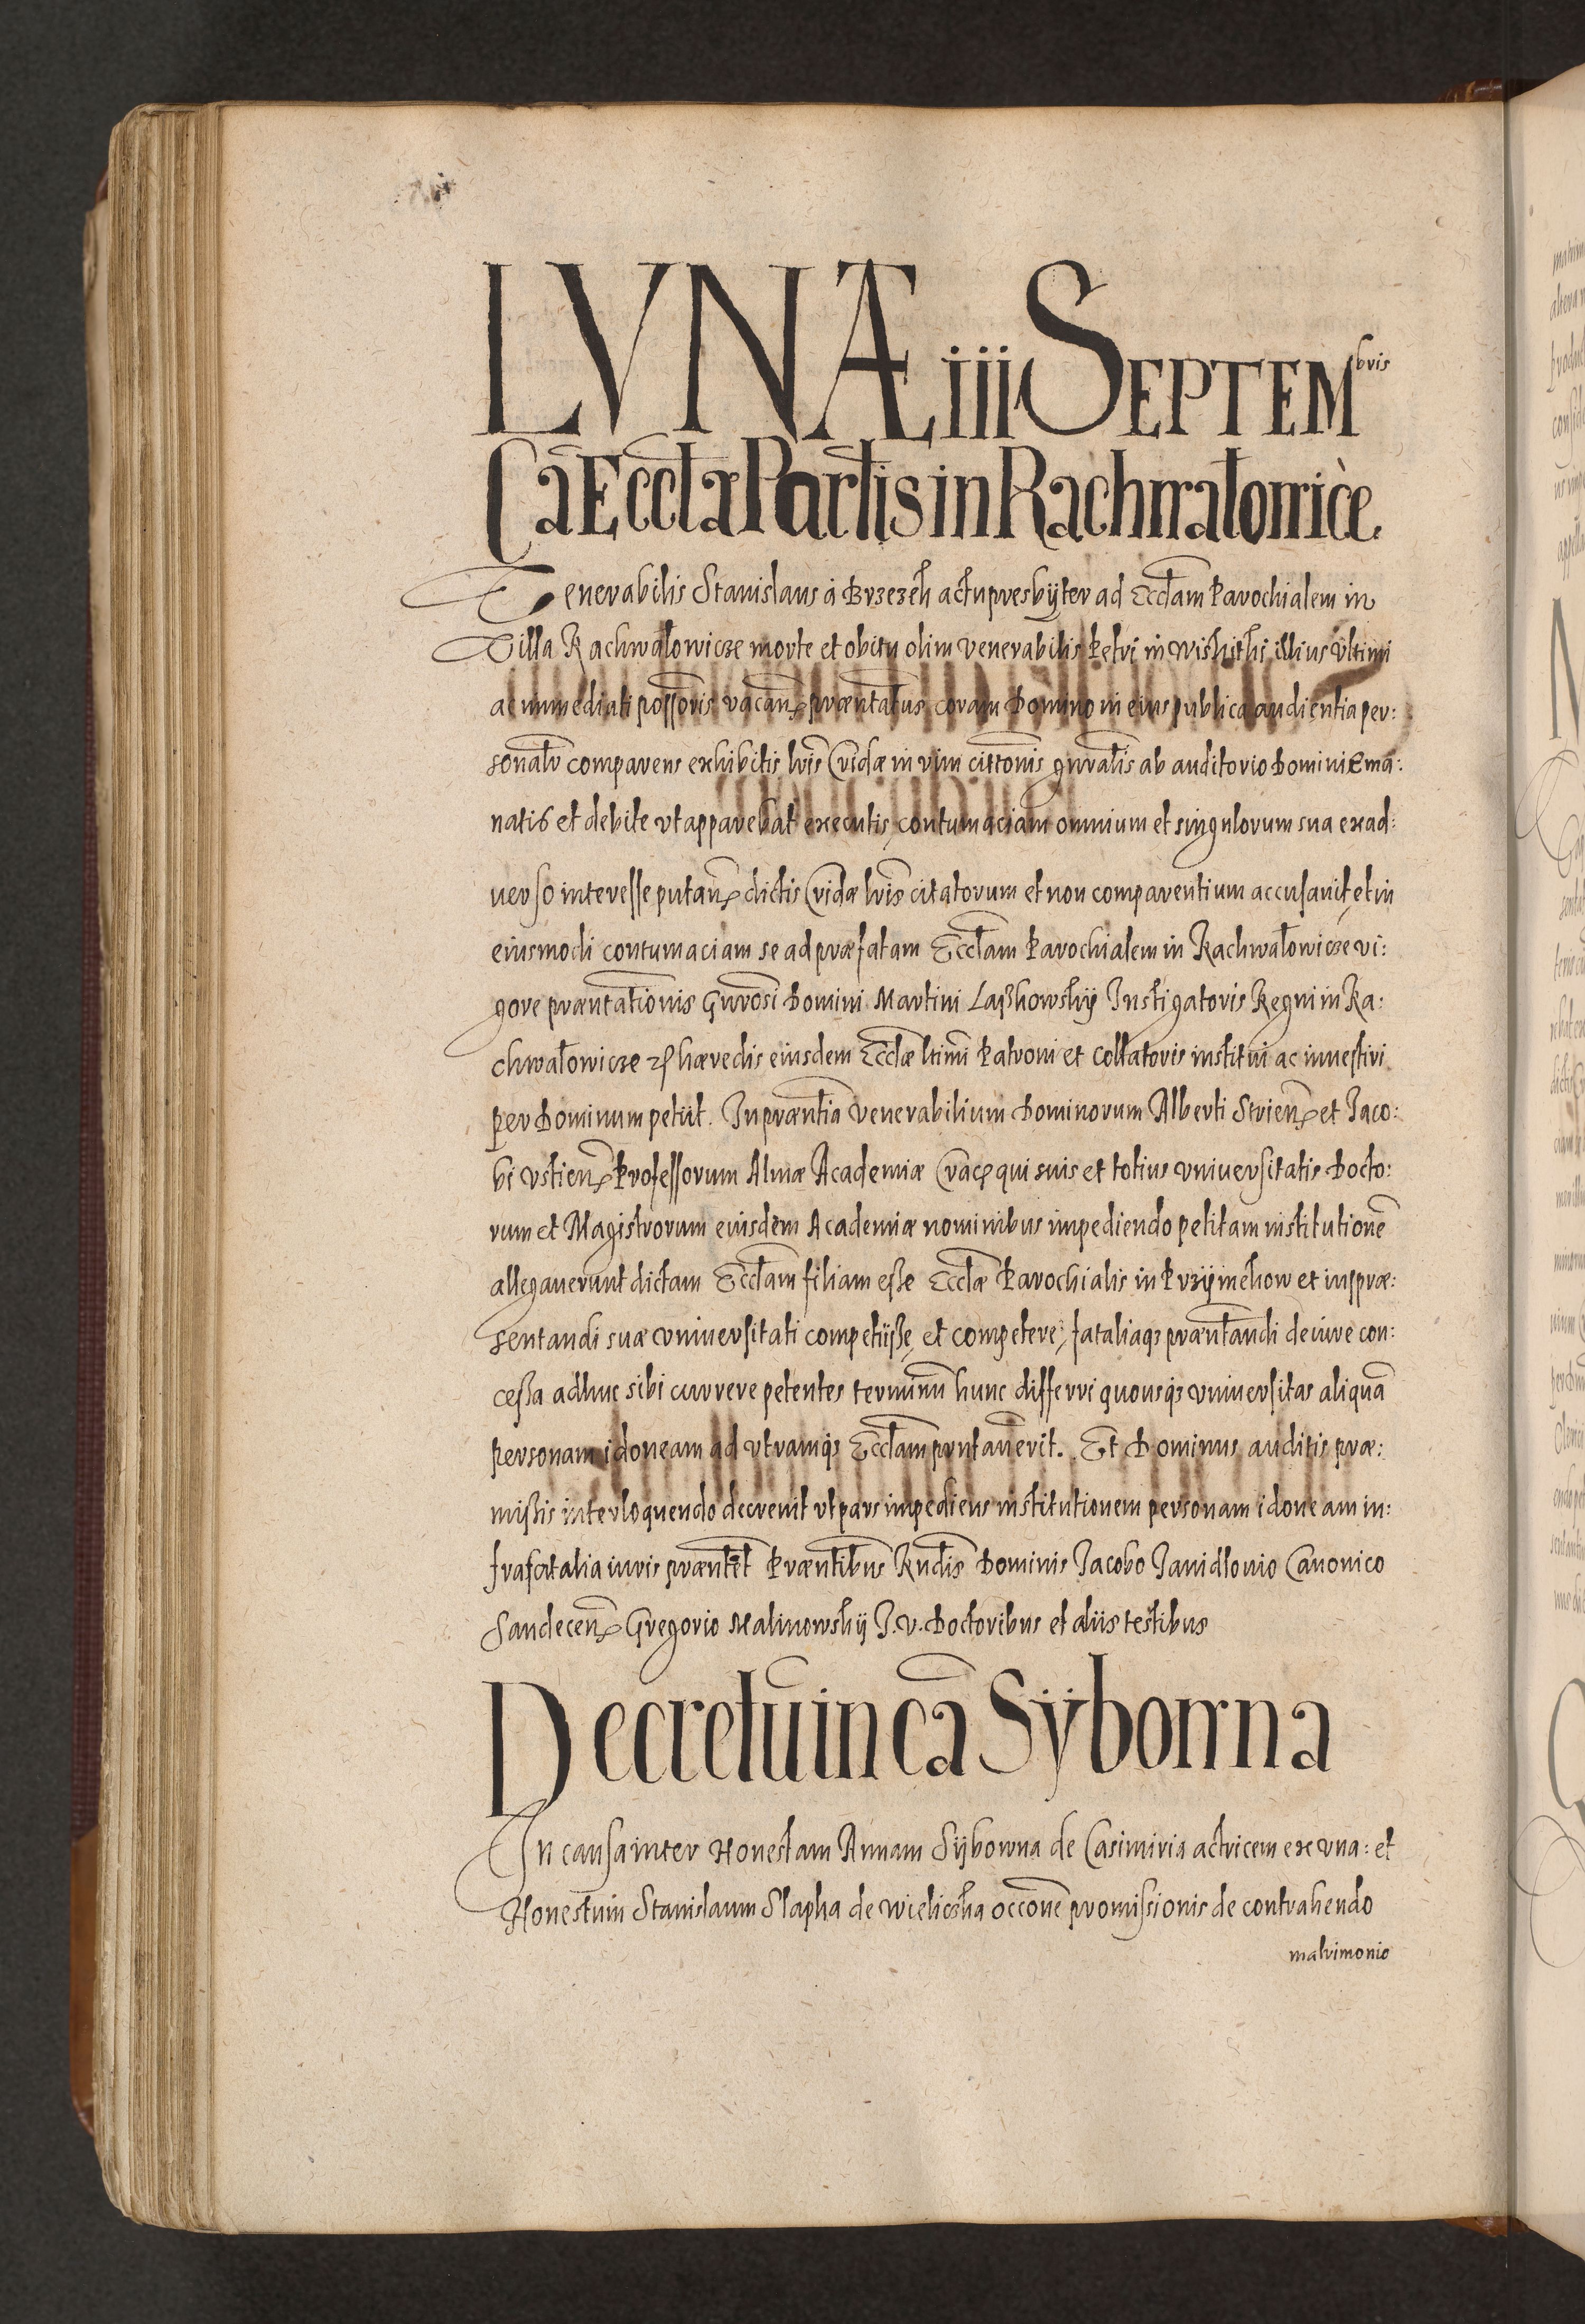 LVNÆ iii SEPTEMbris
Cã Eccłæ Parłis in Rachwałowicè.
Venerabilis Stanislaus à Brzezek actu presbÿter ad Ecclãm Parochialem in
Villa Rachwałowicze morte et obitu olim venerabilis Petri in Wiskitki illius vltimi
ac immediati possõris vacañ: præntatus coram Domino in eius publica audientia per:
sonalr comparens exhibitis lris Cridæ in vim cittonis gnralis ab auditorio Domini Emã:
natis et debite vt apparebat executis, contumaciam omnium et singulorum sua exad:
uerso interesse putañ: dictis Cridæ lris citatorum et non comparentium accusauit, et in
eiusmodi contumaciam se ad præfatam Ecclãm Parochialem in Rachwałowicze vi:
gore præntationis Gnrosi Domini Martini Laszkowskÿ Instigatoris Regni in Ra:
chwałowicze &c hæredis eiusdem Ecclæ ltimi Patroni et Collatoris institui ac inuestiri
per Dominum petiit. In præntia venerabilium Dominorum Alberti Strieñ: et Jaco:
bi Vstieñ: Professorum Almæ Academiæ Crac: qui suis et totius vniuersitatis Docto:
rum et Magistrorum eiusdem Academiæ nominibus impediendo petitam institutionẽ
allegauerunt dictam Ecclãm filiam esse Ecclæ Parochialis in Przÿmękow et iusprę:
sentandi suæ vniuersitati competiisse, et competere, fataliaq3 præntandi de iure con:
cessa adhuc sibi currere petentes terminũ hunc differri quousq3 vniuersitas aliquã
personam idoneam ad vtramq3 Ecclãm prntauerit. Et Dominus auditis præ:
missis interloquendo decreuit vt pars impediens institutionem personam idoneam in:
fra fatalia iuris præntet Præntibus Rndis Dominis Jacobo Janidlouio Canonico
Sandeceñ: Gregorio Malinowskÿ J. V. Doctoribus et aliis testibus
Decretũ in cã Sÿbowna
In causa inter Honestam Annam Sÿbowna de Casimiria actricem ex vna: et
Honestum Stanislaum Slapka de Wieliczka occone promissionis de contrahendo
matrimonio